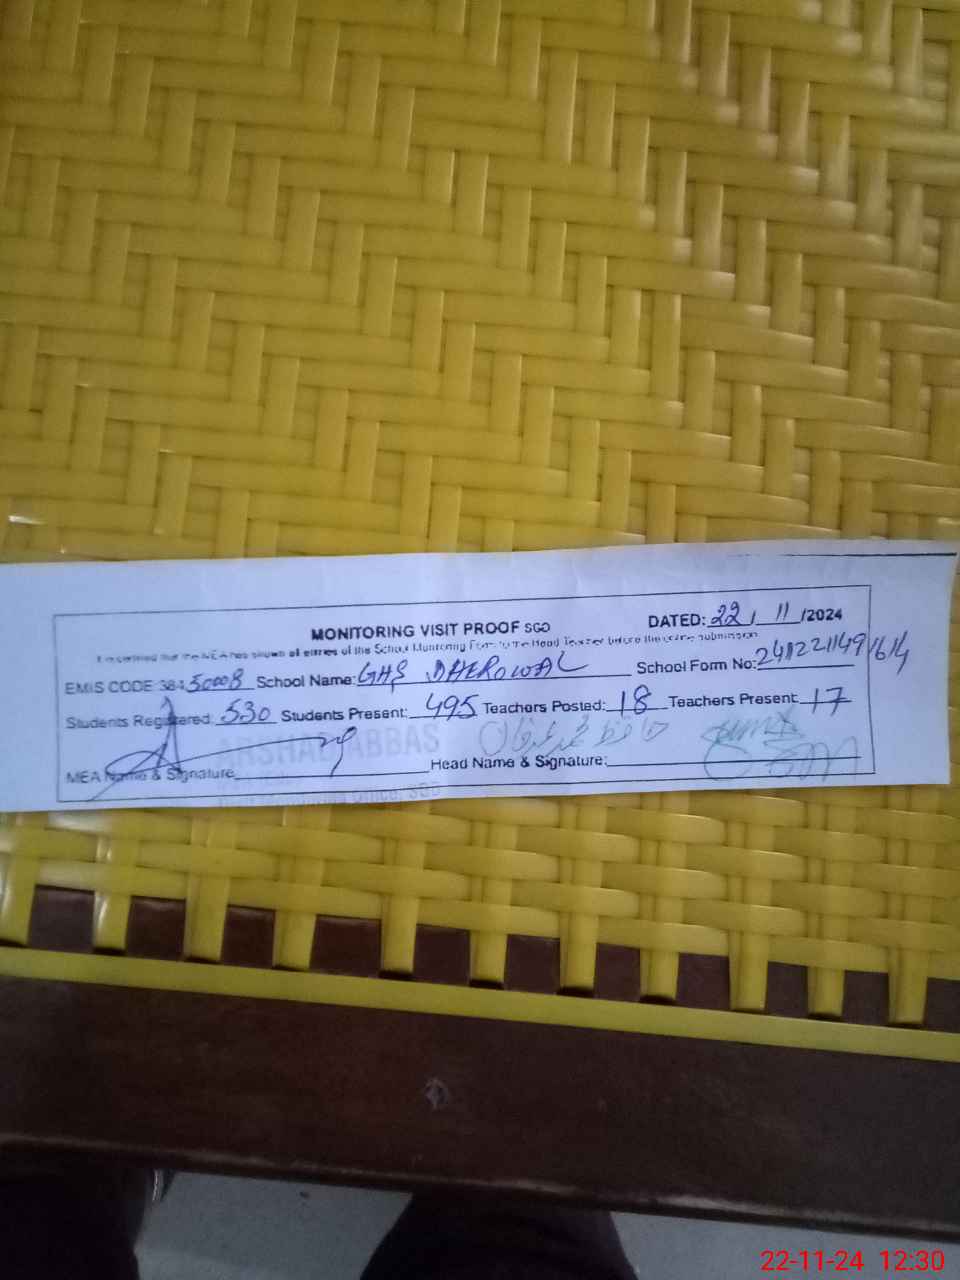 MONITORING VISIT PROOF SGO DATED: 22 / 11 /2024
It is certified that the MEA has shown all entries of the School Monitoring Form to the Head Teacher before the online submission
EMIS CODE 384 50008 School Name: GHS DHEROWAL School Form No: 241221149/614
Students Registered: 530 Students Present: 495 Teachers Posted: 18 Teachers Present: 17
ARSHAD ABBAS
MEA Name & Signature Head Name & Signature:
22-11-24 12:30